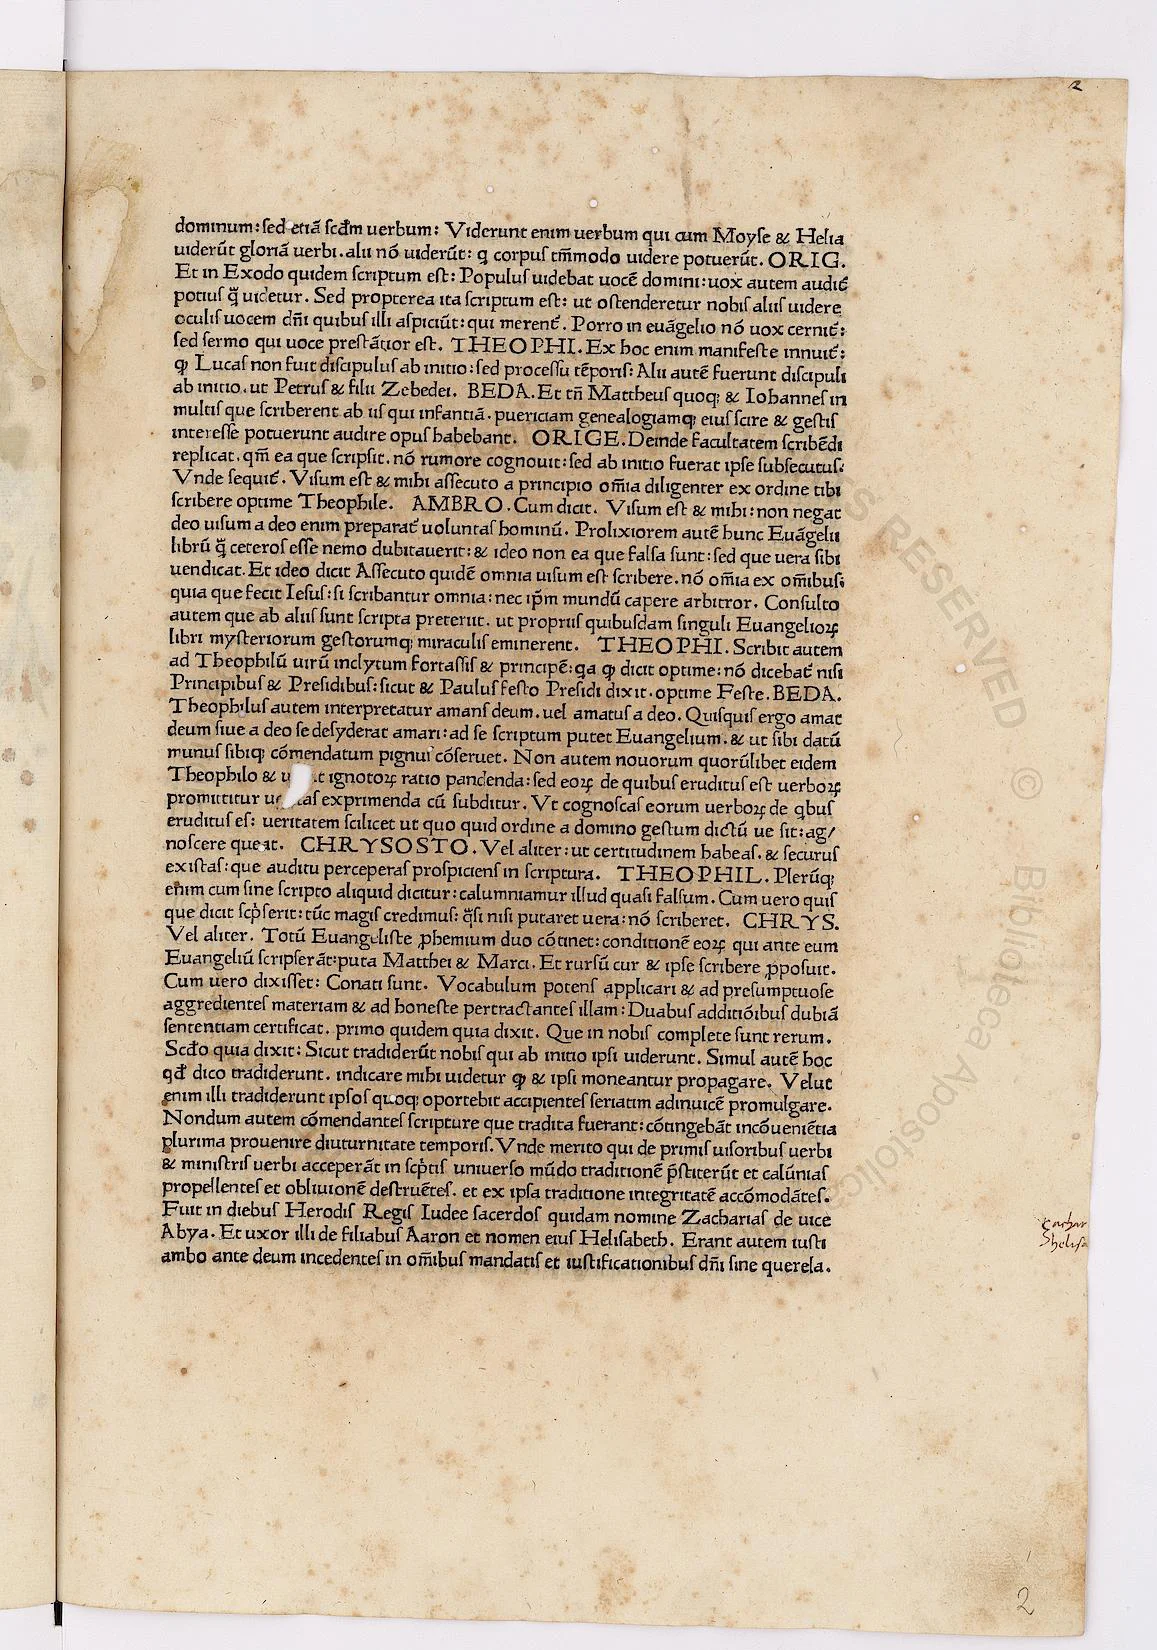 2
dominum: sed etiã scd̃m uerbum: Viderunt enim uerbum qui cum Moyse & Helia
uiderũt gloriã uerbi. alii nõ uiderũt: q corpus tm̃modo uidere potuerũt. ORIG.
Et in Exodo quidem scriptum est: Populus uidebat uocẽ domini: uox autem audit᷑
potius q̃ uidetur. Sed propterea ita scriptum est: ut ostenderetur nobis aliis uidere
oculis uocem dñi quibus illi aspiciũt: qui merent᷑. Porro in euãgelio nõ uox cernit᷑:
sed sermo qui uoce prestãtior est. THEOPHI. Ex hoc enim manifeste innuit᷑:
ꝙ Lucas non fuit discipulus ab initio: sed processu tẽporis: Alii autẽ fuerunt discipuli
ab initio. ut Petrus & filii Zebedei. BEDA. Et tñ Mattheus quoq; & Iohannes in
multis que scriberent ab iis qui infantiã. puericiam genealogiamq; eius scire & gestis
interesse potuerunt audire opus habebant. ORIGE. Deinde facultatem scribẽdi
replicat. qm̃ ea que scripsit. nõ rumore cognouit: sed ab initio fuerat ipse subsecutus:
Vnde sequit᷑. Visum est & mihi assecuto a principio om̃ia diligenter ex ordine tibi
scribere optime Theophile. AMBRO. Cum dicit. Visum est & mihi: non negat
deo uisum a deo enim preparat᷑ uoluntas hominũ. Prolixiorem autẽ hunc Euãgelii
librũ q̃ ceteros esse nemo dubitauerit: & ideo non ea que falsa sunt: sed que uera sibi
uendicat. Et ideo dicit Assecuto quidẽ omnia uisum est scribere. nõ om̃ia ex om̃ibus:
quia que fecit Iesus: si scribantur omnia: nec ip̃m mundũ capere arbitror. Consulto
autem que ab aliis sunt scripta preteriit. ut propriis quibusdam singuli Euangelioꝝ
libri mysteriorum gestorumq; miraculis eminerent. THEOPHI. Scribit autem
ad Theophilũ uirũ inclytum fortassis & principẽ: qa ꝙ dicit optime: nõ dicebat᷑ nisi
Principibus & Presidibus: sicut & Paulus festo Presidi dixit. optime Feste. BEDA.
Theophilus autem interpretatur amans deum. uel amatus a deo. Quisquis ergo amat
deum siue a deo se desyderat amari: ad se scriptum putet Euangelium. & ut sibi datũ
munus sibiq; cõmendatum pignus cõseruet. Non autem nouorum quorũlibet eidem
Theophilo & ignotoꝝ ratio pandenda: sed eoꝝ de quibus eruditus est uerboꝝ
promittitur exprimenda cũ subditur. Vt cognoscas eorum uerboꝝ de qbus
eruditus es: ueritatem scilicet ut quo quid ordine a domino gestum dictũ ue sit: ag/
noscere queat. CHRYSOSTO. Vel aliter: ut certitudinem habeas. & securus
existas: que auditu perceperas prospiciens in scriptura. THEOPHIL. Plerũq;
enim cum sine scripto aliquid dicitur: calumniamur illud quasi falsum. Cum uero quis
que dicit scp̃serit: tũc magis credimus: q̃si nisi putaret uera: nõ scriberet. CHRYS.
Vel aliter. Totũ Euangeliste ꝓhemium duo cõtinet: conditionẽ eoꝝ qui ante eum
Euangeliũ scripserãt: puta Matthei & Marci. Et rursũ cur & ipse scribere ꝓposuit.
Cum uero dixisset: Conati sunt. Vocabulum potens applicari & ad presumptuose
aggredientes materiam & ad honeste pertractantes illam: Duabus additiõibus dubiã
sententiam certificat. primo quidem quia dixit. Que in nobis complete sunt rerum.
Scd̃o quia dixit: Sicut tradiderũt nobis qui ab initio ipsi uiderunt. Simul autẽ hoc
qd̃ dico tradiderunt. indicare mihi uidetur ꝙ & ipsi moneantur propagare. Velut
enim illi tradiderunt ipsos quoq; oportebit accipientes seriatim adinuicẽ promulgare.
Nondum autem cõmendantes scripture que tradita fuerant: cõtingebãt incõueniẽtia
plurima prouenire diuturnitate temporis. Vnde merito qui de primis uisoribus uerbi
& ministris uerbi acceperãt in scp̃tis uniuerso mũdo traditionẽ p̃stiterũt et calũnias
propellentes et obliuionẽ destruẽtes. et ex ipsa traditione integritatẽ accõmodãtes.
Fuit in diebus Herodis Regis Iudee sacerdos quidam nomine Zacharias de uice
Abya. Et uxor illi de filiabus Aaron et nomen eius Helisabeth. Erant autem iusti
ambo ante deum incedentes in om̃ibus mandatis et iustificationibus dñi sine querela.
2